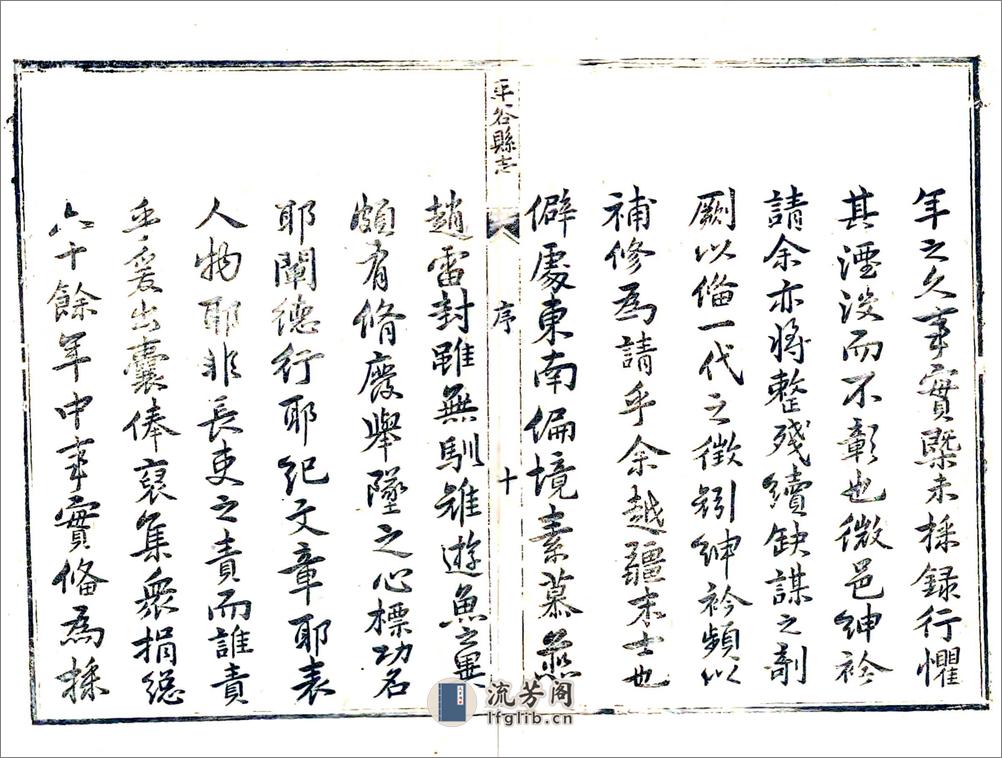 年之久事實槩未採録行懼
其湮沒而不彰也微邑紳衿
請余亦將整殘續缺謀之剞
劂以俻一代之徵矧紳衿頻以
補修為請乎余越疆末士也
僻處東南偏境素慕燕
平谷縣志
序
十
趙雷封雖無馴雉遊魚之異
頗有脩廢舉墜之心標功名
耶闡德行耶紀文章耶表
人物耶非長吏之責而誰責
乎爰出囊俸裒集衆捐總
六十餘年中事實俻為採
流芳阁
lfglib.cn